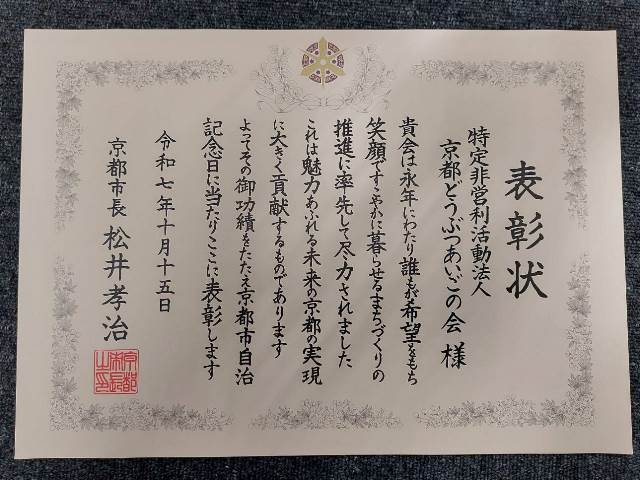 表彰状
特定非営利活動法人
京都どうぶつあいごの会 様
貴会は永年にわたり誰もが希望をもち
笑顔ですこやかに暮らせるまちづくりの
推進に率先して尽力されました
これは魅力あふれる未来の京都の実現
に大きく貢献するものであります
よってその御功績をたたえ京都市自治
記念日に当たりここに表彰します
令和七年十月十五日
京都市長 松井孝治
京都市長之印